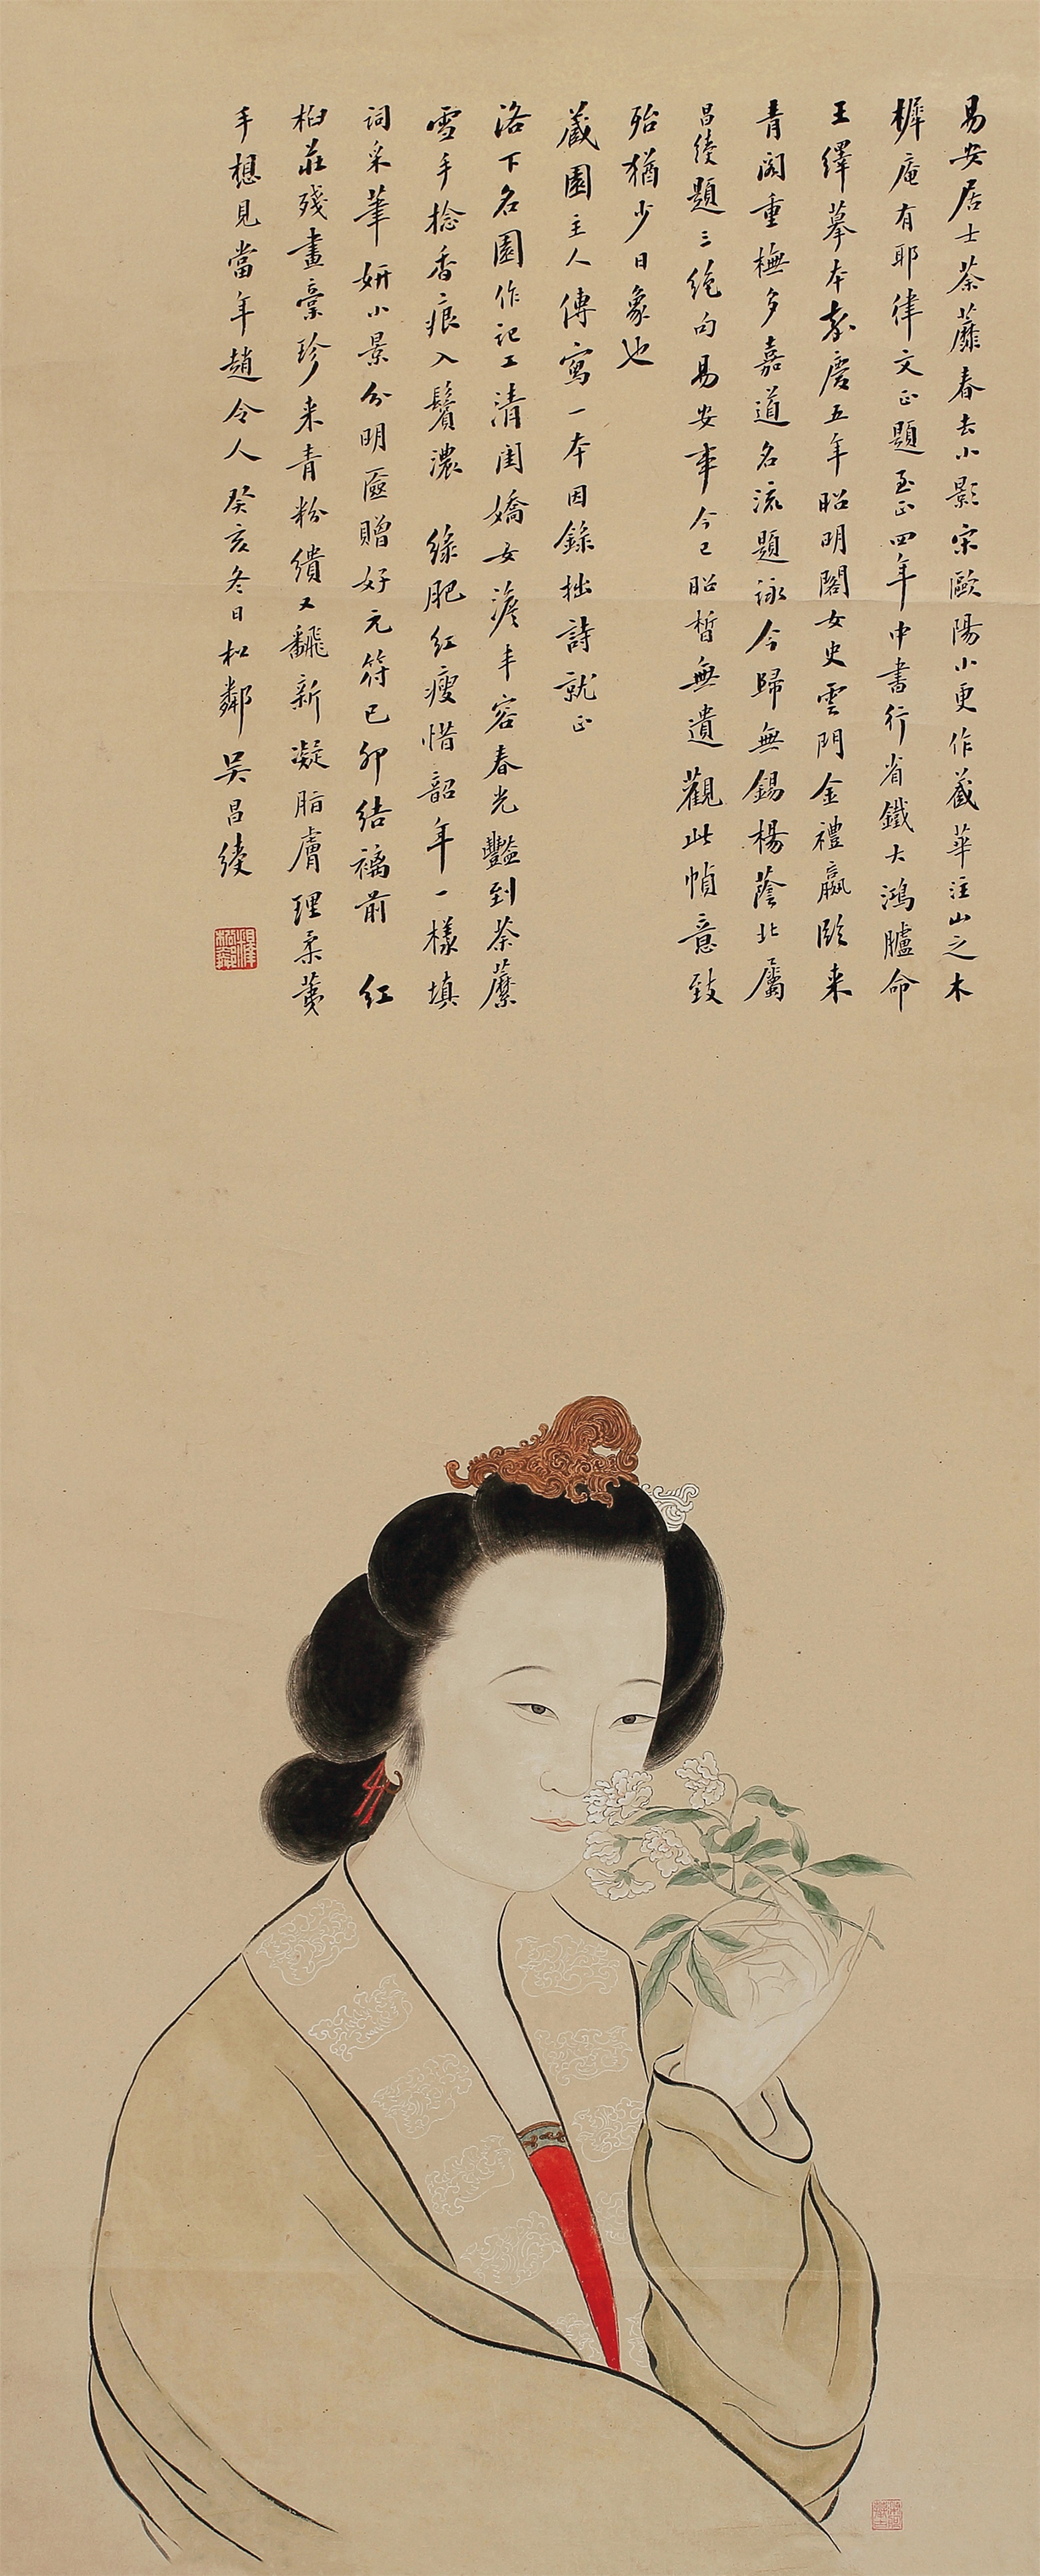 易安居士荼蘼春去小影宋歐陽小更作藏華注山之木
樨庵有耶律文正題至正四年中書行省鐵大鴻臚命
王繹摹本嘉慶五年昭明閣女史雲門金禮嬴臨来
青閣重橅多嘉道名流題詠今歸無錫楊蔭北屬
昌綬題三绝句易安事今已昭晳無遺觀此幀意致
殆猶少日象也
藏園主人傳寫一本因錄拙詩就正
洛下名園作記工清閨嬌女澹丰容春光豔到荼蘼
雪手捻香痕入鬢濃 綠肥紅瘦惜韶年一樣填
詞采筆妍小景分明區贈好元符己卯結褵前 紅
桕莊殘畫稾珍来青粉繢又飜新凝脂膚理柔荑
手想見當年趙令人癸亥冬日松鄰吴昌綬